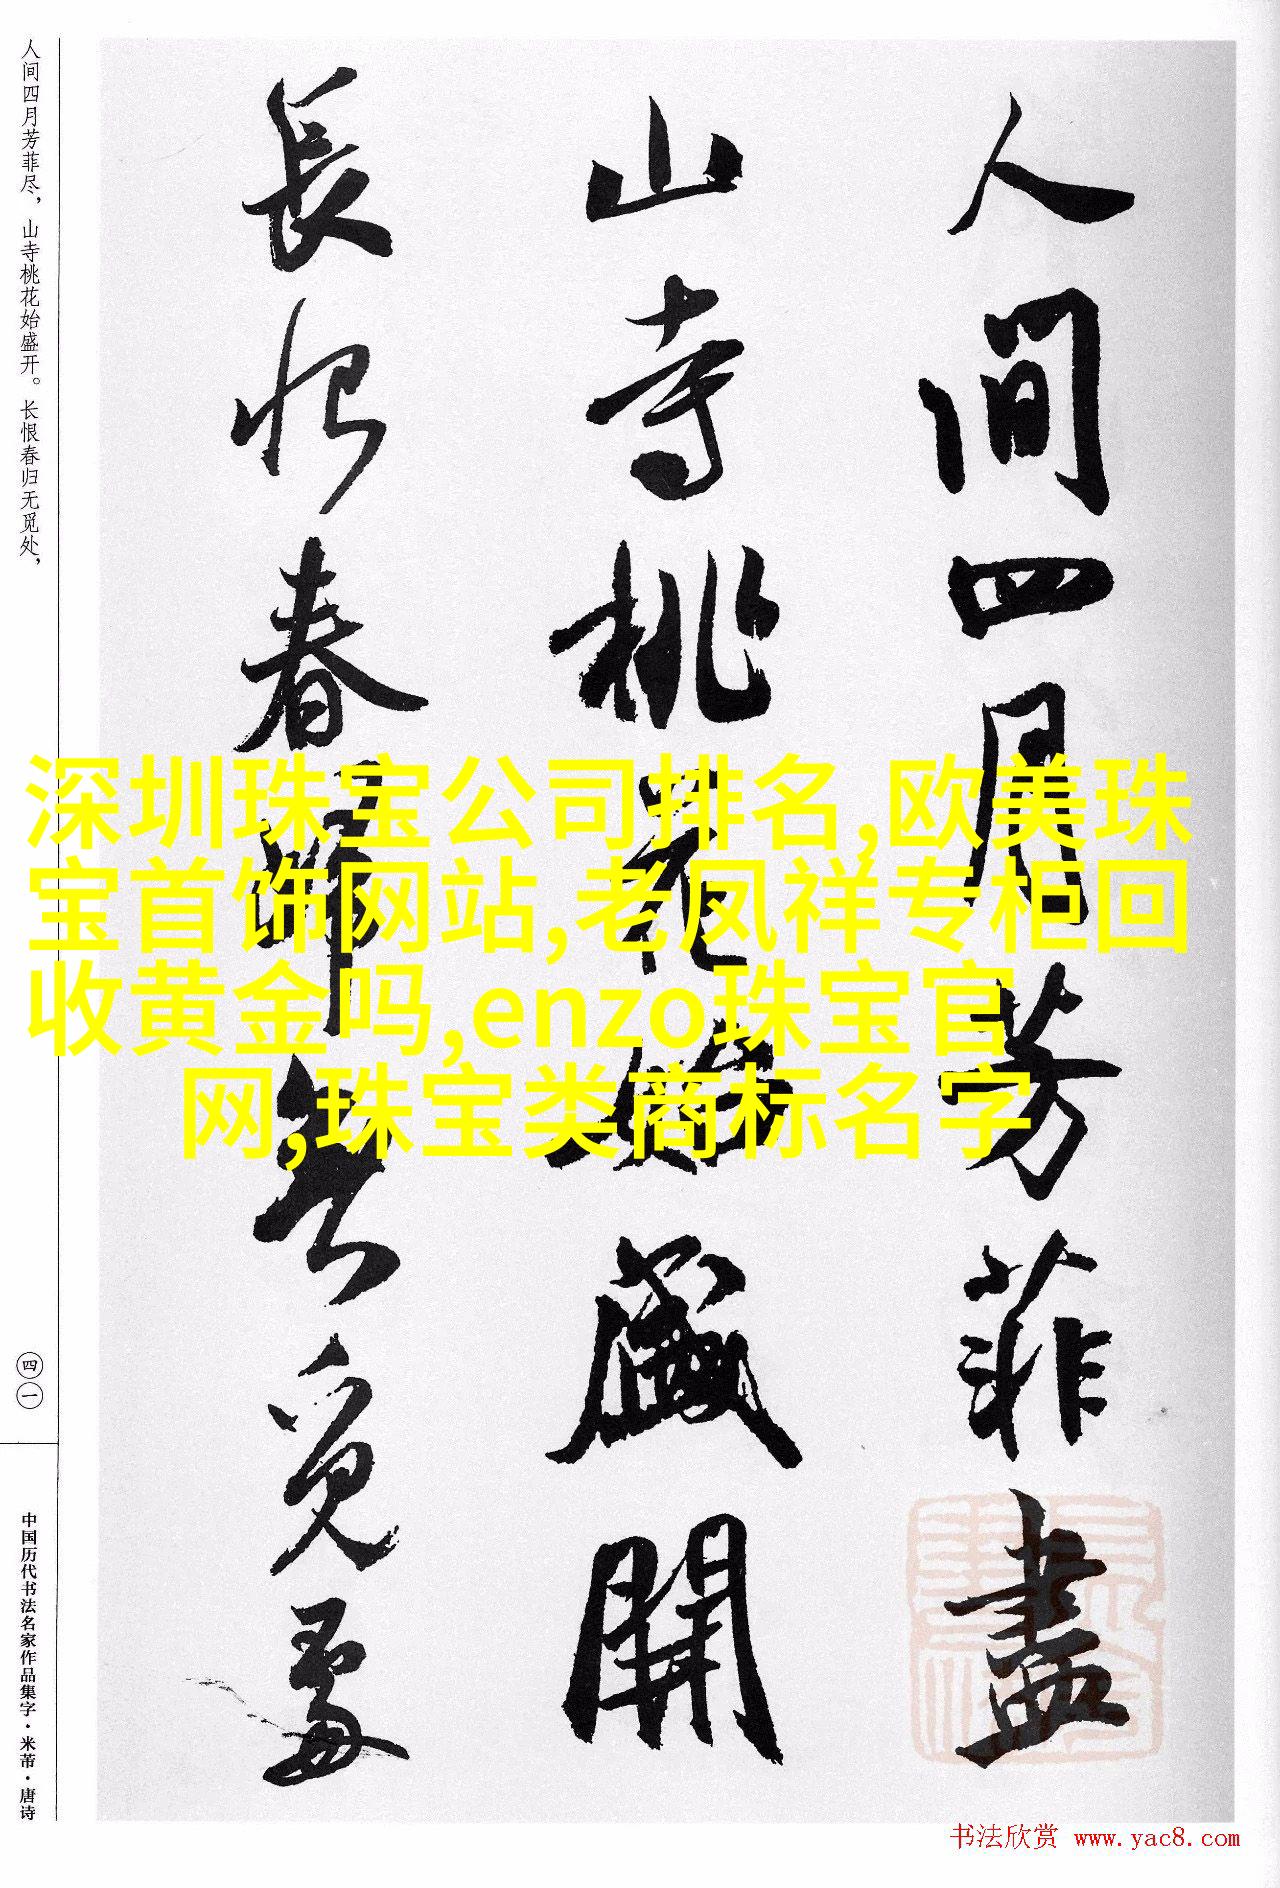 人间四月芳菲尽，山寺桃花始盛开。长恨春归无觅处，
人間四月芳菲盡
山寺桃花始盛開
長恨春歸無覓處
深圳珠宝公司排名,欧美珠
宝首饰网站,老凤祥专柜回
收黄金吗,enzo珠宝官
网,珠宝类商标名字
四一
中国历代书法名家作品集字·米芾·唐诗
书法欣赏 www.yac8.com